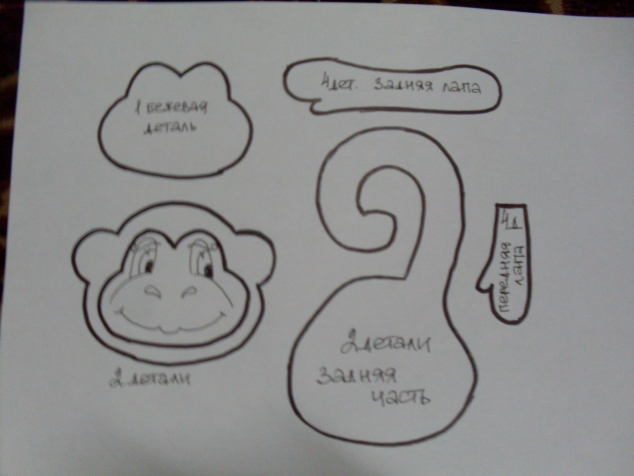 1 бежевая
деталь
4дет. задняя лапа
2 детали
2 детали
задняя
часть
4д
передняя
лапа